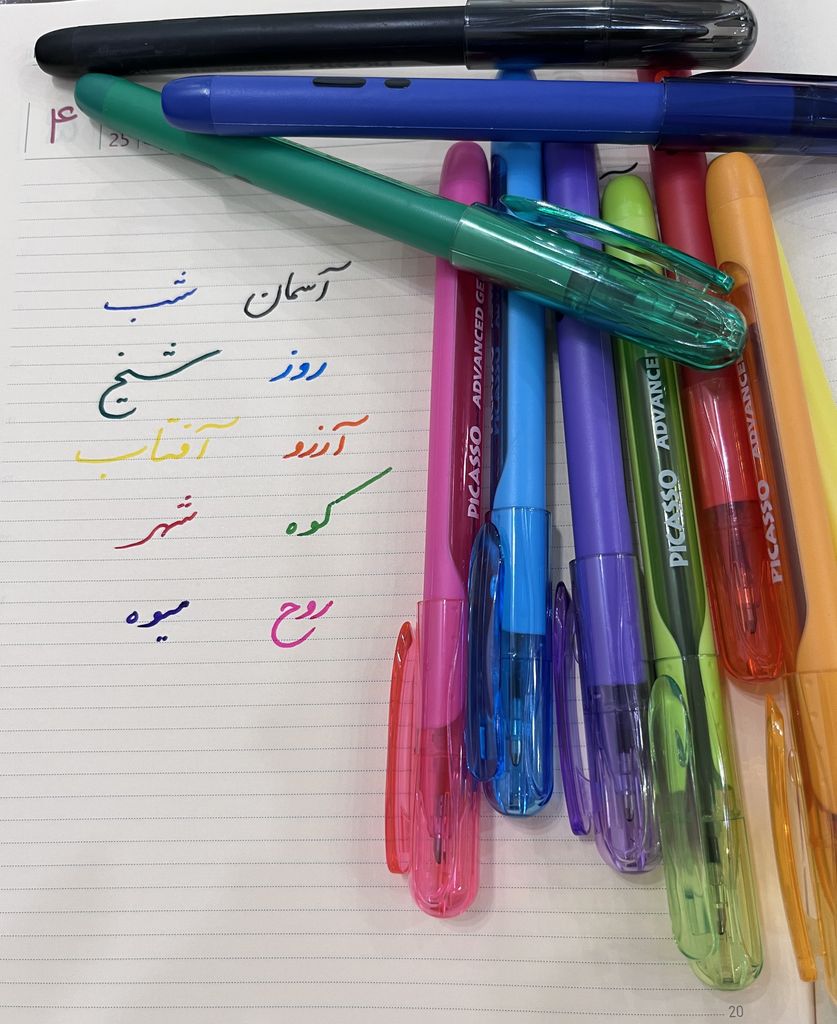 ۴
25
آسمان شب
روز
آرزو آفتاب
کوه شهر
روح میوه
PICASSO ADVANCED GE
PICASSO
PICASSO ADVANCED
PICASSO ADVANCED
20